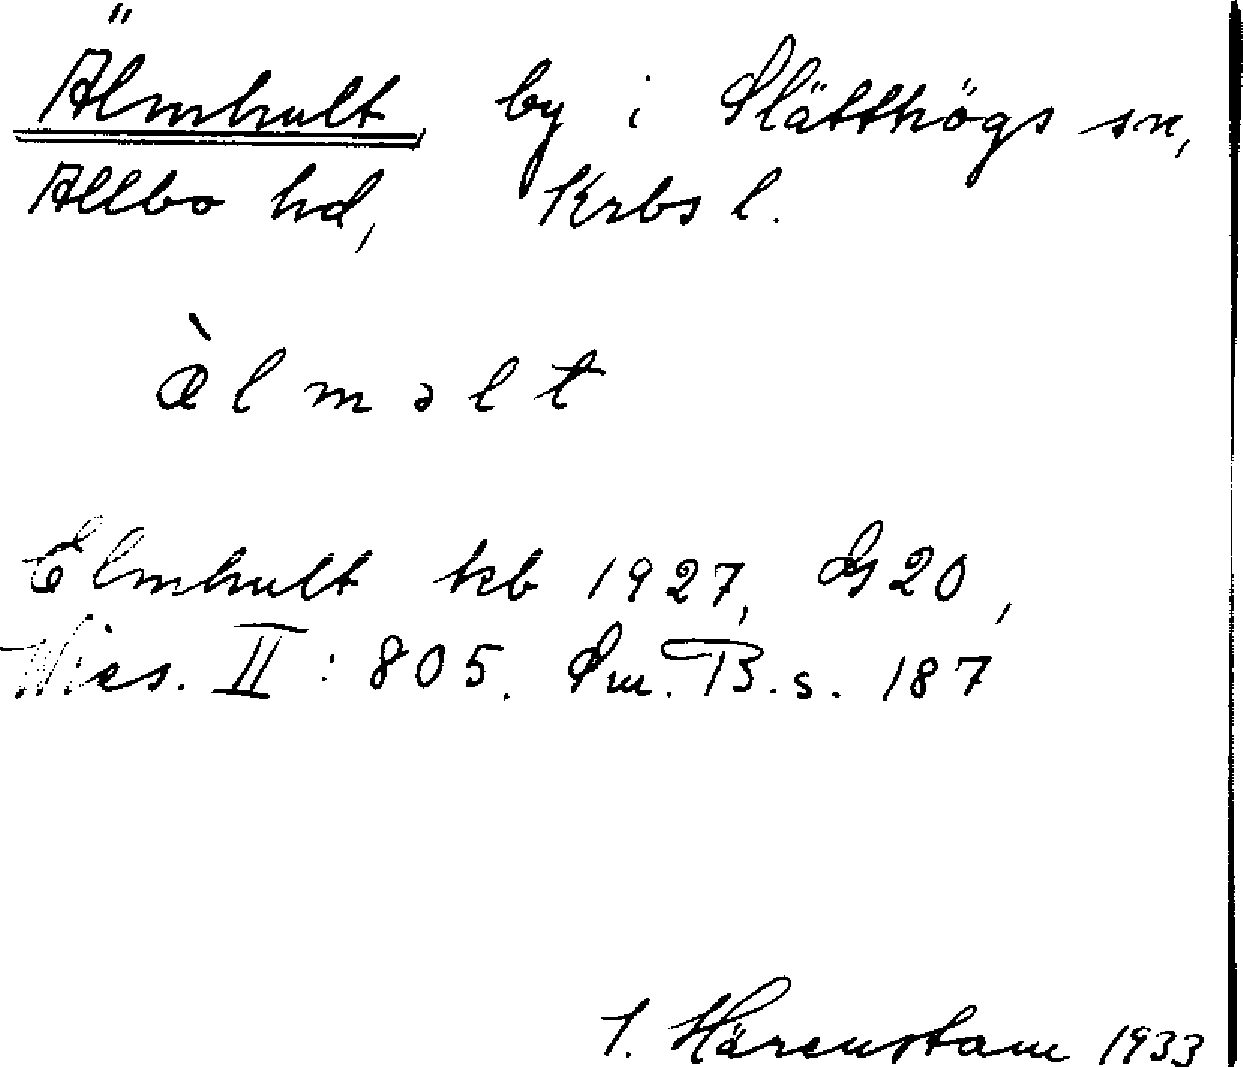 Älmhult by i Slätthögs sn,
Allbo hd, Krbs l.
æ̀lməlt
Elmhult kb 1927, G 20,
Wies. II : 805. Sm. B. s. 187
I. Härenstam 1933